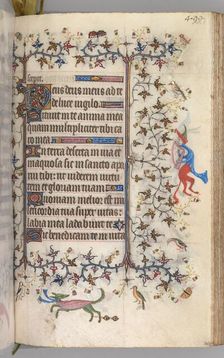 semper.
Deus deus meus ad te
de luce vigilo.
Sitivit in te anima mea
quam multipliciter tibi ca
ro mea
In terra deserta in via et
inaquosa sic in sancto appa
rui tibi: ut viderem virtu
tem et gloriam tuam
Quoniam melior est mi
sericordia tua super vitas:
labia mea laudabunt te
Sic benedicam te in vita